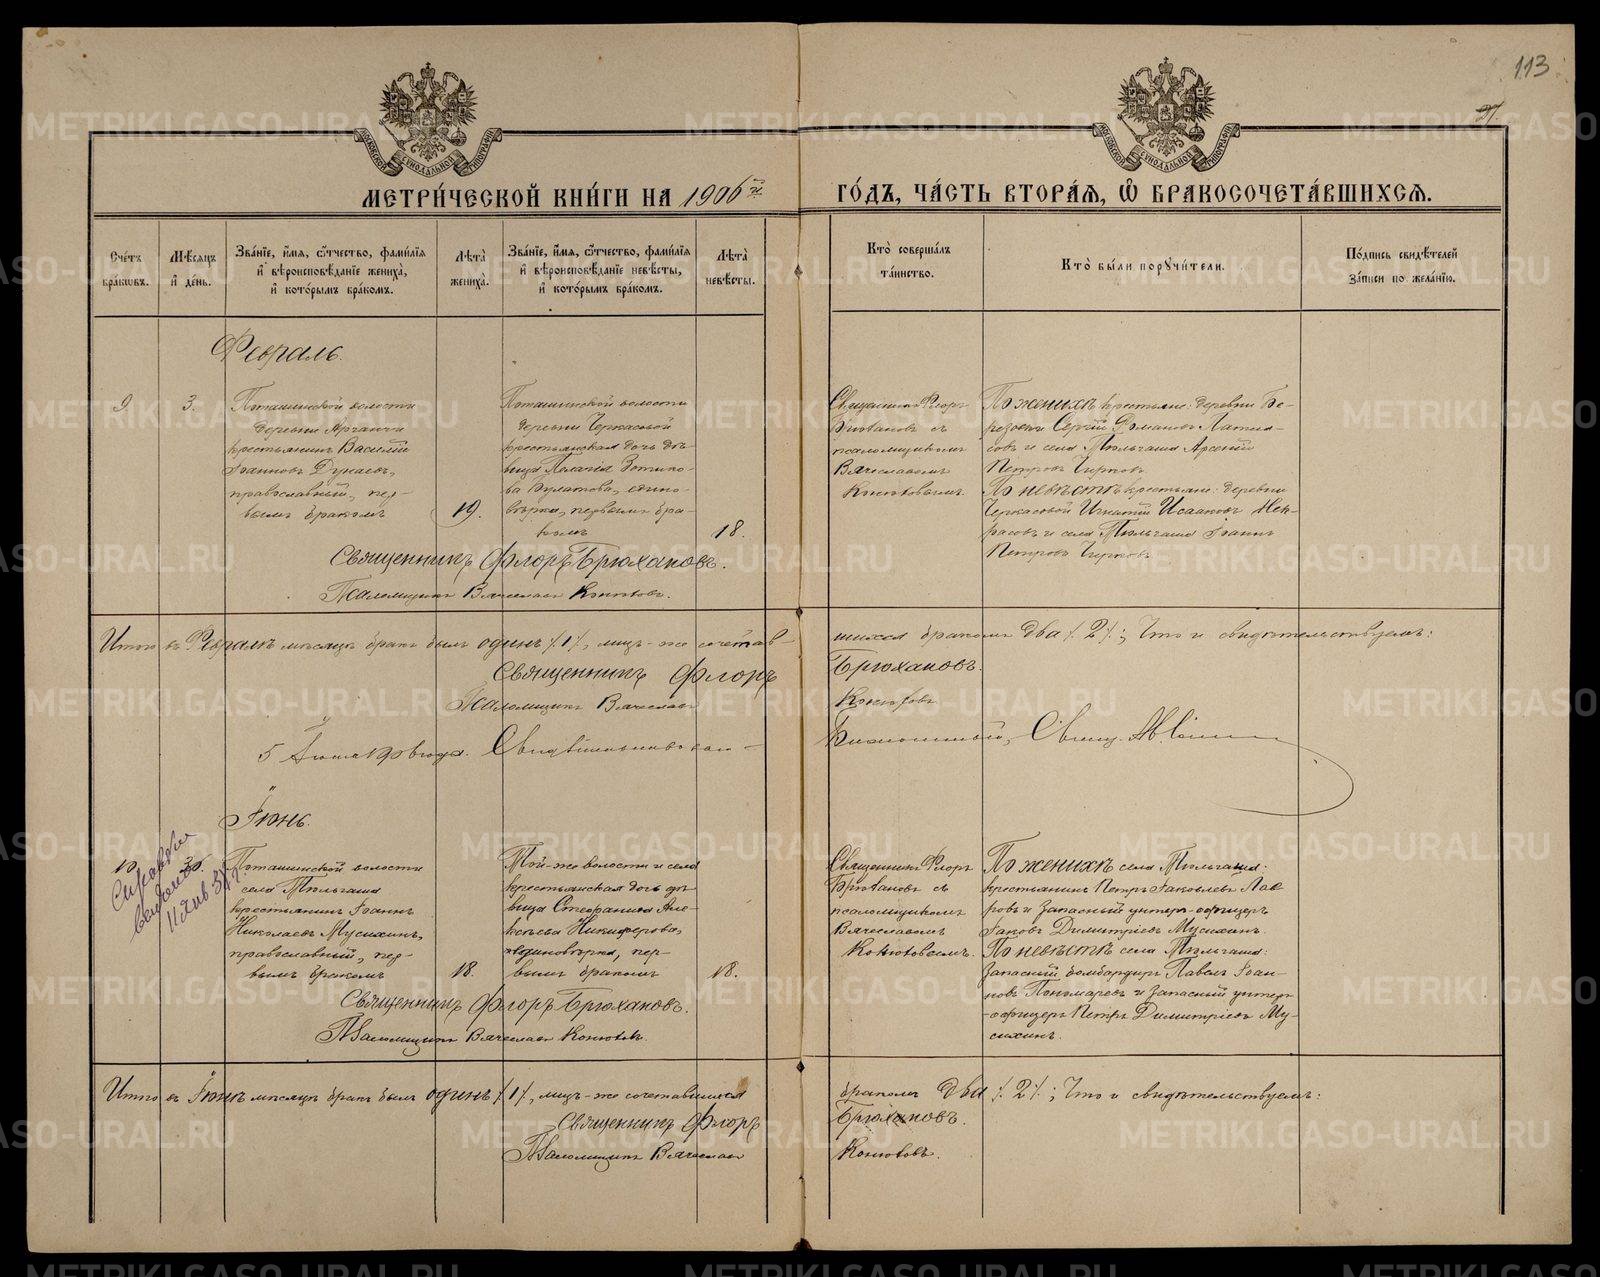 113
37.
МОСКОВСКОЙ СѴНОДАЛЬНОЙ ТИПОГРАФІИ
МОСКОВСКОЙ СѴНОДАЛЬНОЙ ТИПОГРАФІИ
МЕТРИ́ЧЕСКОЙ КНИ́ГИ НА 1906й ГО́ДЪ, ЧА́СТЬ ВТОРА́Я, Ѽ БРАКОСОЧЕТА́ВШИХСѦ.
Сче́тъ бра́кѡвъ.
Мѣ́сяцъ и҆ де́нь.
Зва́нїе, и҆́мя, ѻ҆́тчество, фами́лїя и҆ вѣроисповѣ́данїе жениха̀, и҆ кото́рымъ бра́комъ.
Лѣта̀ жениха̀.
Зва́нїе, и҆́мя, ѻ҆́тчество, фами́лїя и҆ вѣроисповѣ́данїе невѣ́сты, и҆ кото́рымъ бра́комъ.
Лѣта̀ невѣ́сты.
Кто̀ соверша́лъ та́инство.
Кто̀ бы́ли порꙋчи́тели.
По́дпись свидѣ́телей за́писи по жела́нїю.
Февраль.
9.
3.
Поташинской волости
деревни Артаичи
крестьянинъ Василій
Іоанновъ Дунаевъ,
православный, пер-
вымъ бракомъ
19.
Поташинской волости
деревни Черкасовой
крестьянская дочь дѣ-
вица Пелагія Зотико-
ва Булатова, едино-
вѣрка, первымъ бра-
комъ
18.
Священникъ Флоръ
Брюхановъ съ
псаломщикомъ
Вячеславомъ
Конюховымъ.
По женихѣ крестьяне: деревни Бе-
резовки Сергій Романовъ Латы-
совъ и села Тюльгаша Арсеній
Петровъ Чирковъ.
По невѣстѣ крестьяне: деревни
Черкасовой Игнатій Исааковъ Нек-
расовъ и села Тюльгаша Іоаннъ
Петровъ Чирковъ.
Священникъ Флоръ Брюхановъ.
Псаломщикъ Вячеславъ Конюховъ.
Итого въ Февралѣ мѣсяцѣ бракъ былъ одинъ /.1./, лицъ-же сочетав-
шихся бракомъ два /.2./; Что и свидѣтельствуемъ:
Священникъ Флоръ Брюхановъ.
Псаломщикъ Вячеславъ Конюховъ
5 1906 года.
Благочинный, Свящ.
Іюнь.
10.
Справка
выдана
11 янв 37 г.
Поташинской волости
села Тюльгаша
крестьянинъ Іоаннъ
Николаевъ Мусихинъ,
православный, пер-
вымъ бракомъ
18.
Той-же волости и села
крестьянская дочь дѣ-
вица Стефанида Але-
ксѣева Никиферова,
единовѣрка, пер-
вымъ бракомъ
18.
Священникъ Флоръ
Брюхановъ съ
псаломщикомъ
Вячеславомъ
Конюховымъ.
По женихѣ села Тюльгаша:
крестьянинъ Петръ Іаковлевъ Лав-
ровъ и запасный унтеръ-офицеръ
Іаковъ Димитріевъ Мусихинъ.
По невѣстѣ села Тюльгаша:
запасный бомбардиръ Павелъ Іоан-
новъ Пономаревъ и запасный унтеръ
-офицеръ Петръ Димитріевъ Му-
сихинъ.
Священникъ Флоръ Брюхановъ.
Псаломщикъ Вячеславъ Конюховъ.
Итого въ Іюнѣ мѣсяцѣ бракъ былъ одинъ /.1./, лицъ-же сочетавшихся
бракомъ два /.2./; Что и свидѣтельствуемъ:
Священникъ Флоръ Брюхановъ.
Псаломщикъ Вячеславъ Конюховъ.
METRIKI.GASO-URAL.RU